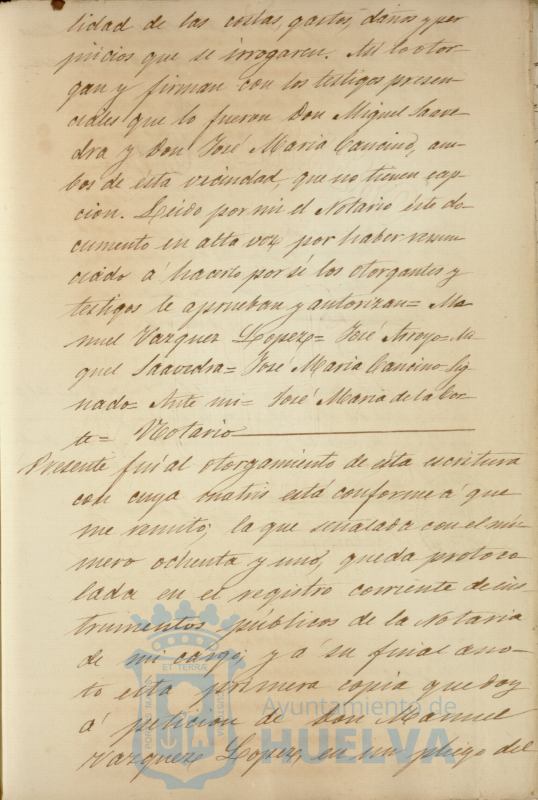 lidad de las costas, gastos, daños y per
juicios que se irrogaren. Asi lo otor-
gan y firman con los testigos presen-
ciales que lo fueron Don Miguel Saave-
dra y Don José Maria Cancino, am-
bos de esta vecindad, que no tienen escep-
cion. Leido por mi el Notario este do-
cumento en alta voz por haber renun-
ciado á hacerlo por sí los otorgantes y
testigos le aprueban y autorizan= Ma-
nuel Vazquez Lopez= José Arroyo= Mi-
guel Saavedra= José Maria Cancino= Sig-
nado= Ante mi= José Maria de la Cor-
te= Notario
Presente fuí al otorgamiento de esta escritura
con cuya matris está conforme á que
me remito; la que señalada con el nú-
mero ochenta y uno, queda protoco-
lada en el registro corriente de ins-
trumentos públicos de la Notaria
de mi cargo; y á su final ano-
to esta primera copia que doy
á peticion de Don Manuel
Vazquez Lopez, en un pliego del
ET TERRÆ
PORTUS MARIS
CUSTODIA
Ayuntamiento de
HUELVA